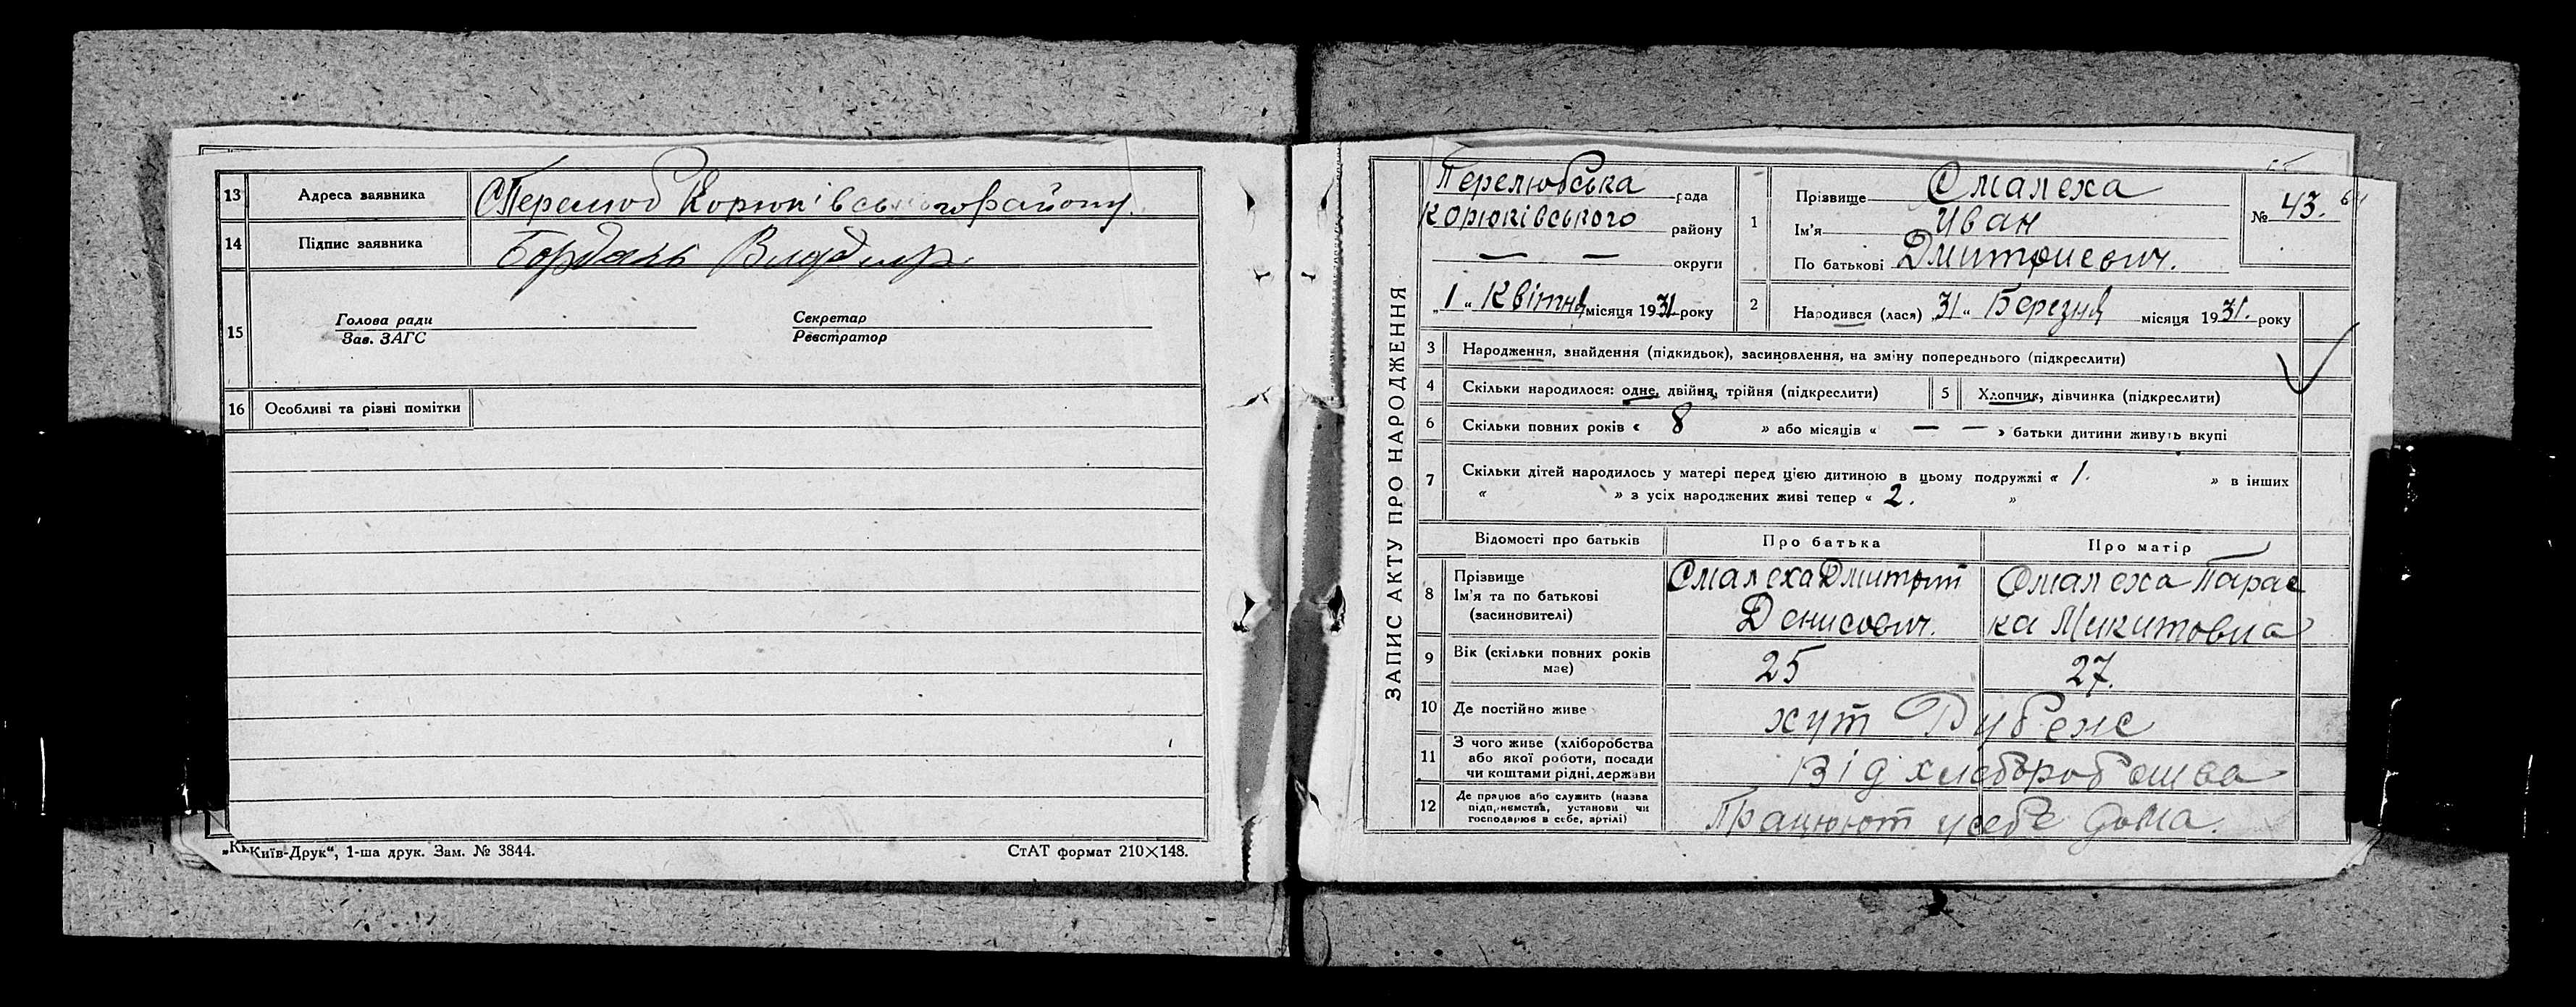 13 Адреса заявника С Перелюб Корюківського району.
14 Підпис заявника
15 Голова ради Секретар
Зав. ЗАГС Реєстратор
16 Особливі та різні помітки
„Київ-Друк“, 1-ша друк. Зам. № 3844. СтАТ формат 210×148.
ЗАПИС АКТУ ПРО НАРОДЖЕННЯ
Перелюбська рада
Корюківського району
— — округи
„1“ Квітня місяця 1931 року
1 Прізвище Смалеха
Ім'я Иван
По батькові Дмитриевич.
№ 43.
2 Народився (лася) „31“ Березня місяця 1931. року
3 Народження, знайдення (підкидьок), засиновлення, на зміну попереднього (підкреслити)
4 Скільки народилося: одне, двійня, трійня (підкреслити) 5 Хлопчик, дівчинка (підкреслити)
6 Скільки повних років « 8 » або місяців « — — » батьки дитини живуть вкупі
7 Скільки дітей народилось у матері перед цією дитиною в цьому подружжі « 1. » в інших
« » з усіх народжених живі тепер « 2. »
Відомості про батьків Про батька Про матір
8 Прізвище Ім'я та по батькові (засиновителі) Смалеха Дмитрий Денисович. Смалеха Параска Микитовна
9 Вік (скільки повних років має) 25 27.
10 Де постійно живе хут
11 З чого живе (хліборобства або якої роботи, посади чи коштами рідні, держави Від хлеборобства
12 Де працює або служить (назва підприємства, установи чи господарює в себе, артілі) Працюют у себе дома.